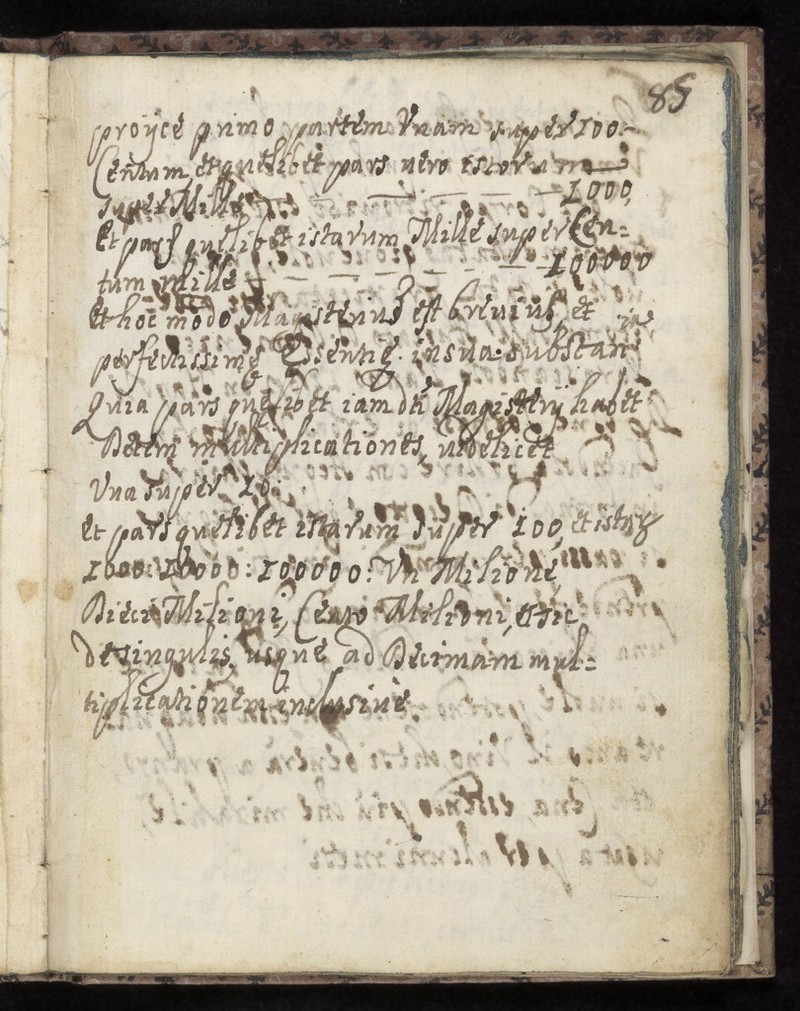 85
proijce primo partem Vnam super 100 -
Centum, et quelibet pars uero istorum
super Mille - - - - 1000,
Et pars quelibet istarum Mille super Cen=
tum mille - - - - - - 100000
Et hoc modo Magisterius est breuius, et in
perfectissime Essentie. in sua substan
Quia pars quelibet iam dti Magisterij habet
Decem multiplicationes, uidelicet
Vna super 10:
Et pars quelibet istarum super 100, et
1000: 10000: 100000: Vn Milione,
Dieci Milioni, Cento Milioni, et sic
de singulis, usque ad Decimam mul=
tiplicationem inclusiue